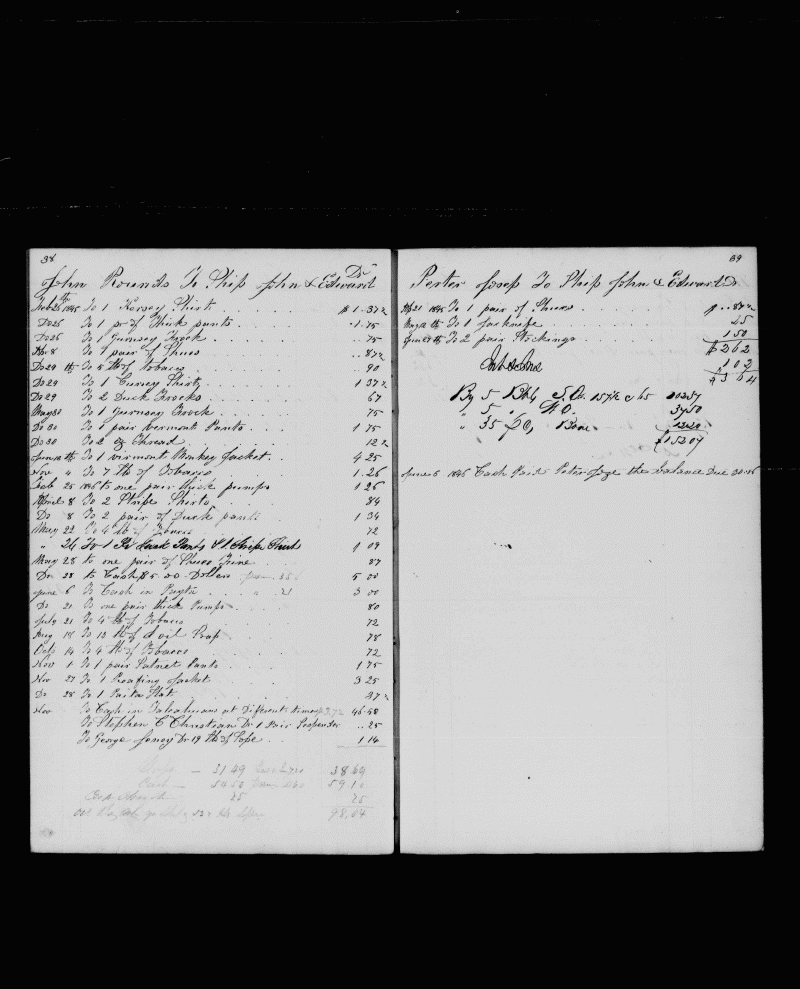 38
John Rounds To Ship John & Edward Dr
Feb 26th 1845 To 1 Kersey Shirt $1.37½
Do 26 To 1 pr of Thick pants 1.75
Do 26 To 1 Gurnsey Frock 75
8 To 1 pair of Shoes 87½
Do 29th To 5 lb of tobacco 90
Do 29 To 1 Shirt 1 37½
Do 29 To 2 Duck Frocks 67
May 30 To 1 Guernsey Frock 75
Do 30 To 1 pair Pants 1 75
Do 30 To 2 of Thread 12½
To 1 Monkey Jacket 4 25
Nov " To 7 lb of Tobacco 1.26
Feb 25 1846 to one pair thick pumps 1 26
April 8 To 2 Stripe Shirts 84
Do 8 To 2 pair of Duck pants 1 34
May 22 To 4 lb of Tobacco 72
" 26 To 1 Pr Duck Pants & 1 Stripe Shirt 1 09
May 28 to one pair of Shoes 87
Do 28 to Cash $5.00 Dollers 5 00
June 6 To Cash in 3 00
Do 21 To one pair thick Pumps 80
July 21 To 4 lb of Tobacco 72
Aug 17 To 13 lb of Soap 78
Oct 14 To 4 lb of Tobacco 72
Nov 1 To 1 pair Satnet Pants 1 75
Nov 27 To 1 Jacket 3 25
Do 28 To 1 Hat 47½
Nov To Cash in Talcahuano at Different times 46.58
To Stephen C Christian Dr 1 Pair Suspender 25
To George Dr 19 lb of 1 14
31 49 38 69
Cash 54 58 59 10
25 25
98,04
39
Peter Josep To Ship John & Edward Dr
21 1845 To 1 pair of Shoes $ 87½
To 1 jacknife 25
To 2 pair Stockings 1 50
$ 2 62
1 02
$ 3 64
By 5 Bbl S.O.
" 5 " W O. 3750
" 35 Bone
$152 07
June 6 1846 Cash Paid Peter the Balance Due